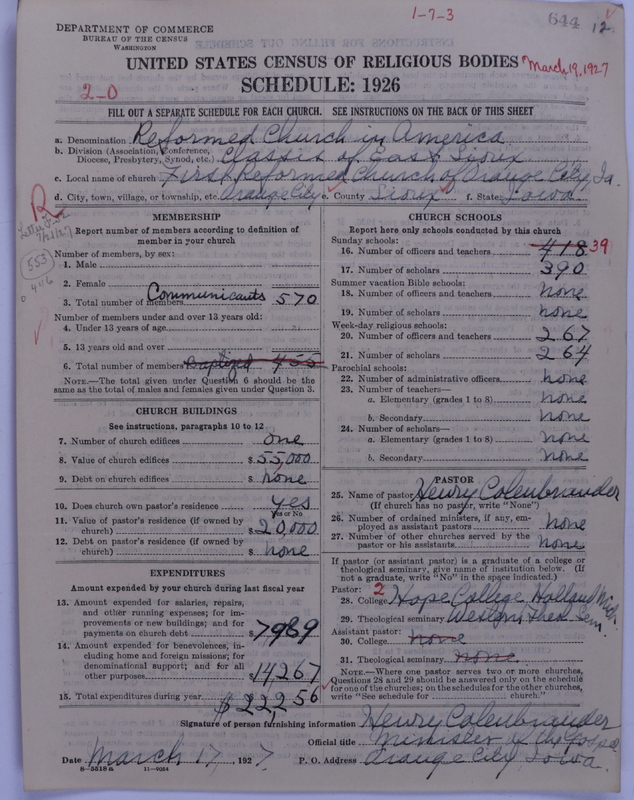 1-7-3
644
12.
DEPARTMENT OF COMMERCE
BUREAU OF THE CENSUS
WASHINGTON
UNITED STATES CENSUS OF RELIGIOUS BODIES
March 19, 1927
SCHEDULE: 1926
2-0
FILL OUT A SEPARATE SCHEDULE FOR EACH CHURCH. SEE INSTRUCTIONS ON THE BACK OF THIS SHEET
a. Denomination Reformed Church in America
b. Division (Association, Conference, Diocese, Presbytery, Synod, etc.) Classis of East Sioux
c. Local name of church First Reformed Church of Orange City, Ia.
d. City, town, village, or township, etc. Orange City e. County Sioux f. State Iowa.
R
553
406
MEMBERSHIP
Report number of members according to definition of
member in your church
Number of members, by sex:
1. Male
2. Female
3. Total number of members Communicants 570
Number of members under and over 13 years old:
4. Under 13 years of age
5. 13 years old and over
6. Total number of members Baptized 455
NOTE.—The total given under Question 6 should be
same as the total of males and females given under Question 3.
CHURCH BUILDINGS
See instructions, paragraphs 10 to 12
7. Number of church edifices one
8. Value of church edifices $55,000
9. Debt on church edifices $ none
10. Does church own pastor's residence yes
Yes or No
11. Value of pastor's residence (if owned by
church) $20,000
12. Debt on pastor's residence (if owned by
church) $ none
EXPENDITURES
Amount expended by your church during last fiscal year
13. Amount expended for salaries, repairs,
and other running expenses; for im-
provements or new buildings; and for
payments on church debt $7989
14. Amount expended for benevolences, in-
cluding home and foreign missions; for
denominational support; and for all
other purposes $14267
15. Total expenditures during year $22,256
CHURCH SCHOOLS
Report here only schools conducted by this church
Sunday schools:
16. Number of officers and teachers 418 39
17. Number of scholars 390
Summer vacation Bible schools:
18. Number of officers and teachers none
19. Number of scholars none
Week-day religious schools:
20. Number of officers and teachers 267
21. Number of scholars 264
Parochial schools:
22. Number of administrative officers none
23. Number of teachers—
a. Elementary (grades 1 to 8) none
b. Secondary none
24. Number of scholars—
a. Elementary (grades 1 to 8) none
b. Secondary none
PASTOR
25. Name of pastor Henry Colenbrander
(If church has no pastor, write "None")
26. Number of ordained ministers, if any, em-
ployed as assistant pastors none
27. Number of other churches served by the
pastor or his assistants none
If pastor (or assistant pastor) is a graduate of a college or
theological seminary, give name of institution below. (If
not a graduate, write "No" in the space indicated.)
Pastor: 2
28. College Hope College Holland Mich.
29. Theological seminary Western Theol. Sem.
Assistant pastor:
30. College none
31. Theological seminary none
NOTE.—Where one pastor serves two or more churches,
Questions 28 and 29 should be answered only on the schedule
for one of the churches; on the schedules for the other churches,
write "See schedule for church."
Signature of person furnishing information Henry Colenbrander
Official title Minister of the Gospel
Date March 17, 1927. P. O. Address Orange City Iowa.
8-5518a 11-9024